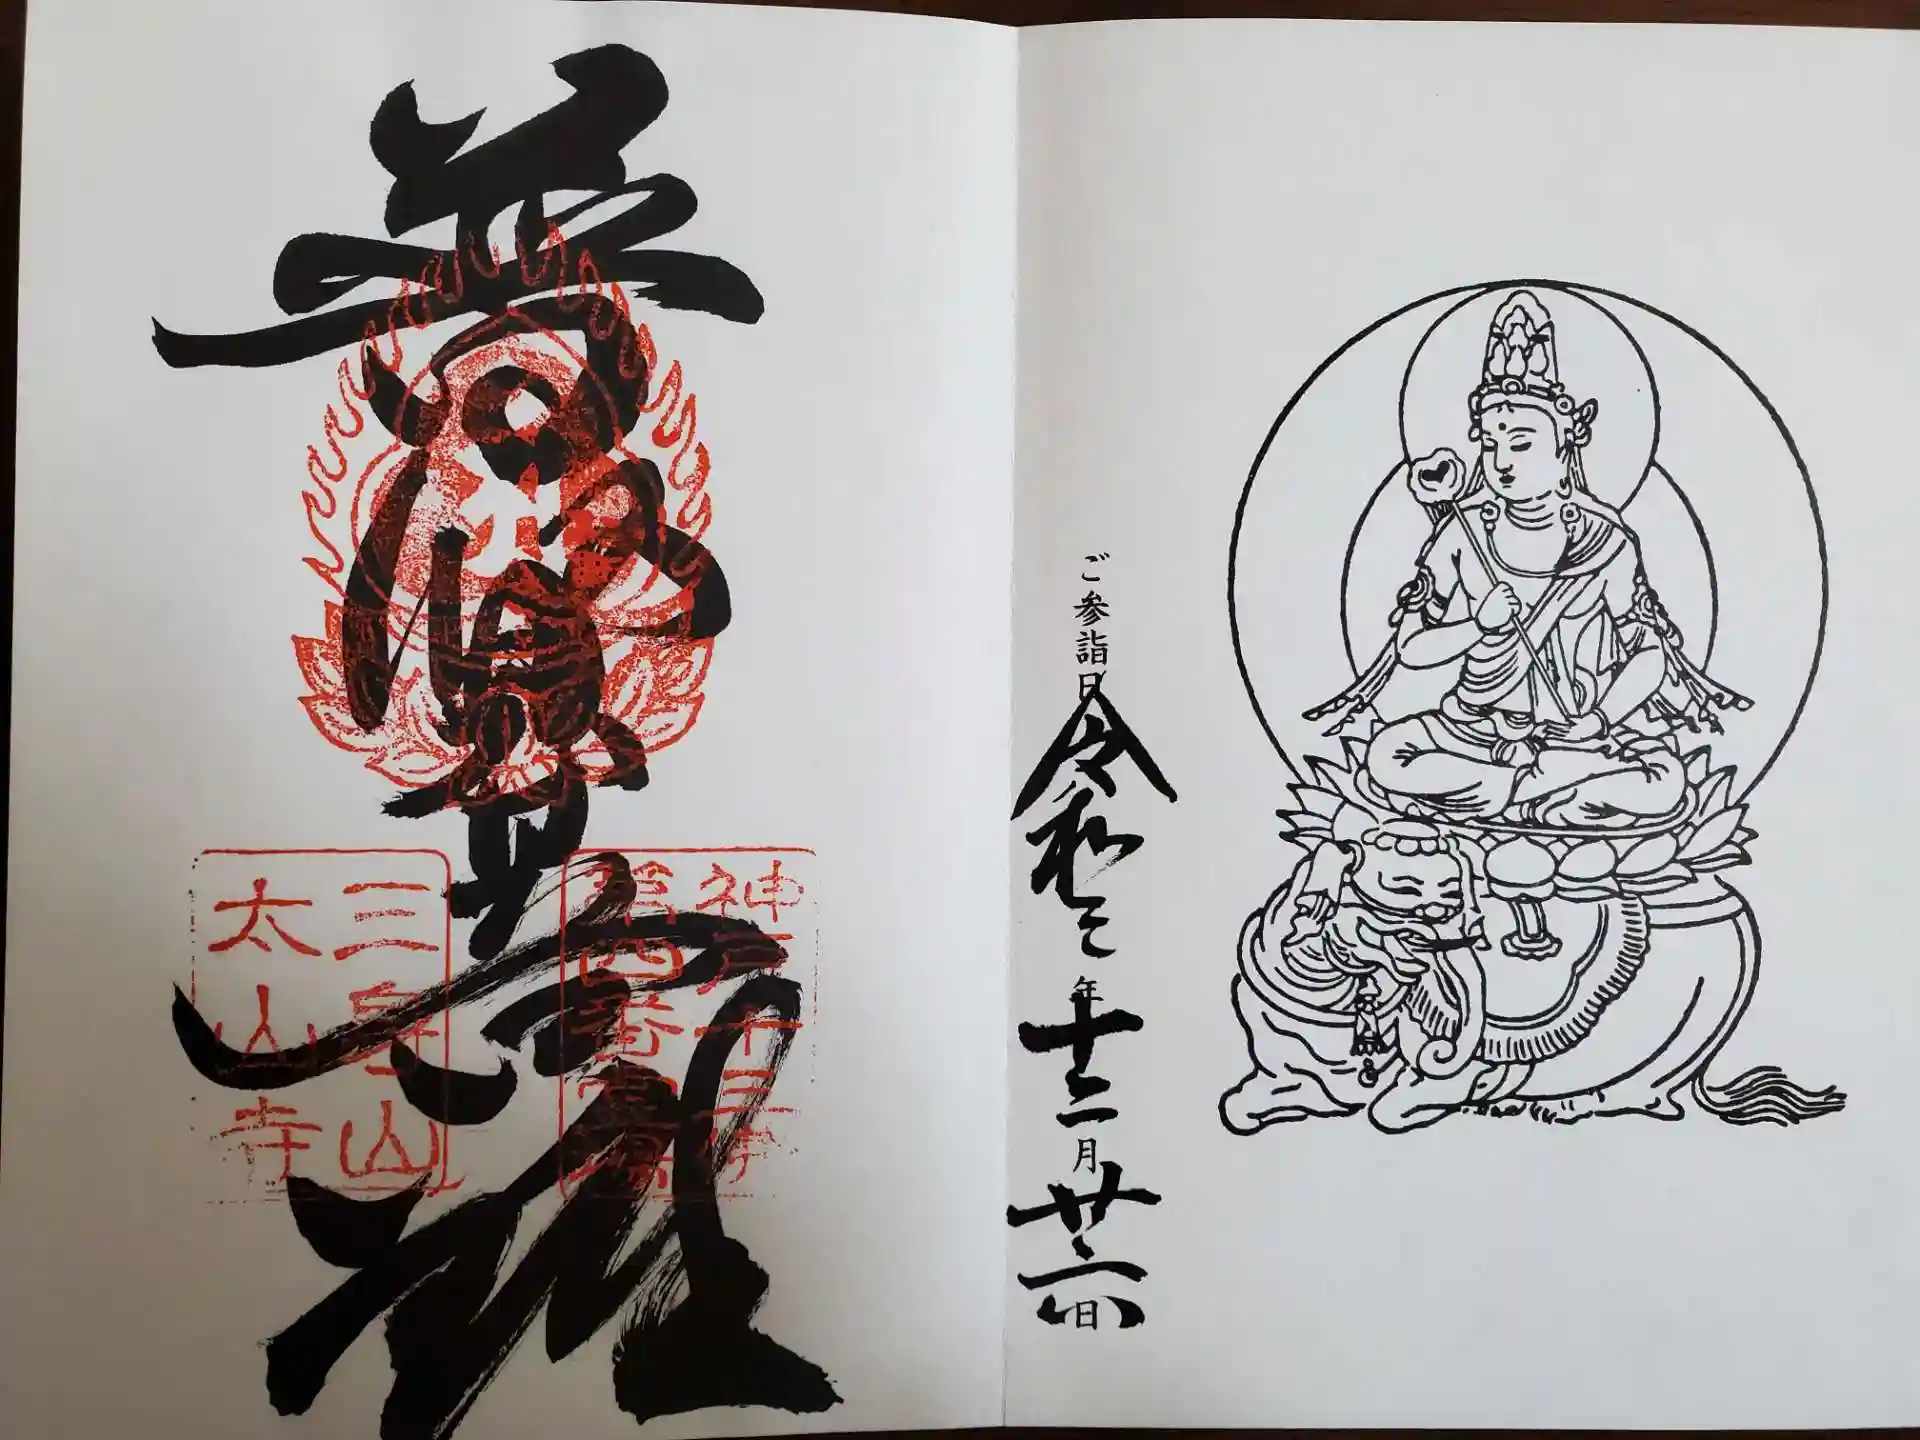 ご参詣日 令和三年十二月廿六日
普賢菩薩
神戸十三佛
第四番霊場
三身山
太山寺